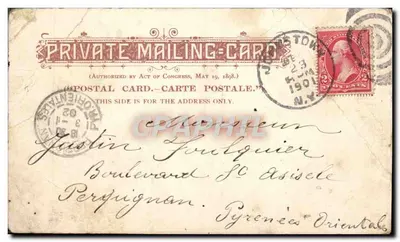 PRIVATE MAILING-CARD
(AUTHORIZED BY ACT OF CONGRESS, MAY 19, 1898.)
"POSTAL CARD.—CARTE POSTALE."
THIS SIDE IS FOR THE ADDRESS ONLY.
JOHNSTOWN
28
1901
N.Y.
Monsieur
Justin Foulquier
Boulevard St Assiscle
Perpignan
Pyrénées Orientales